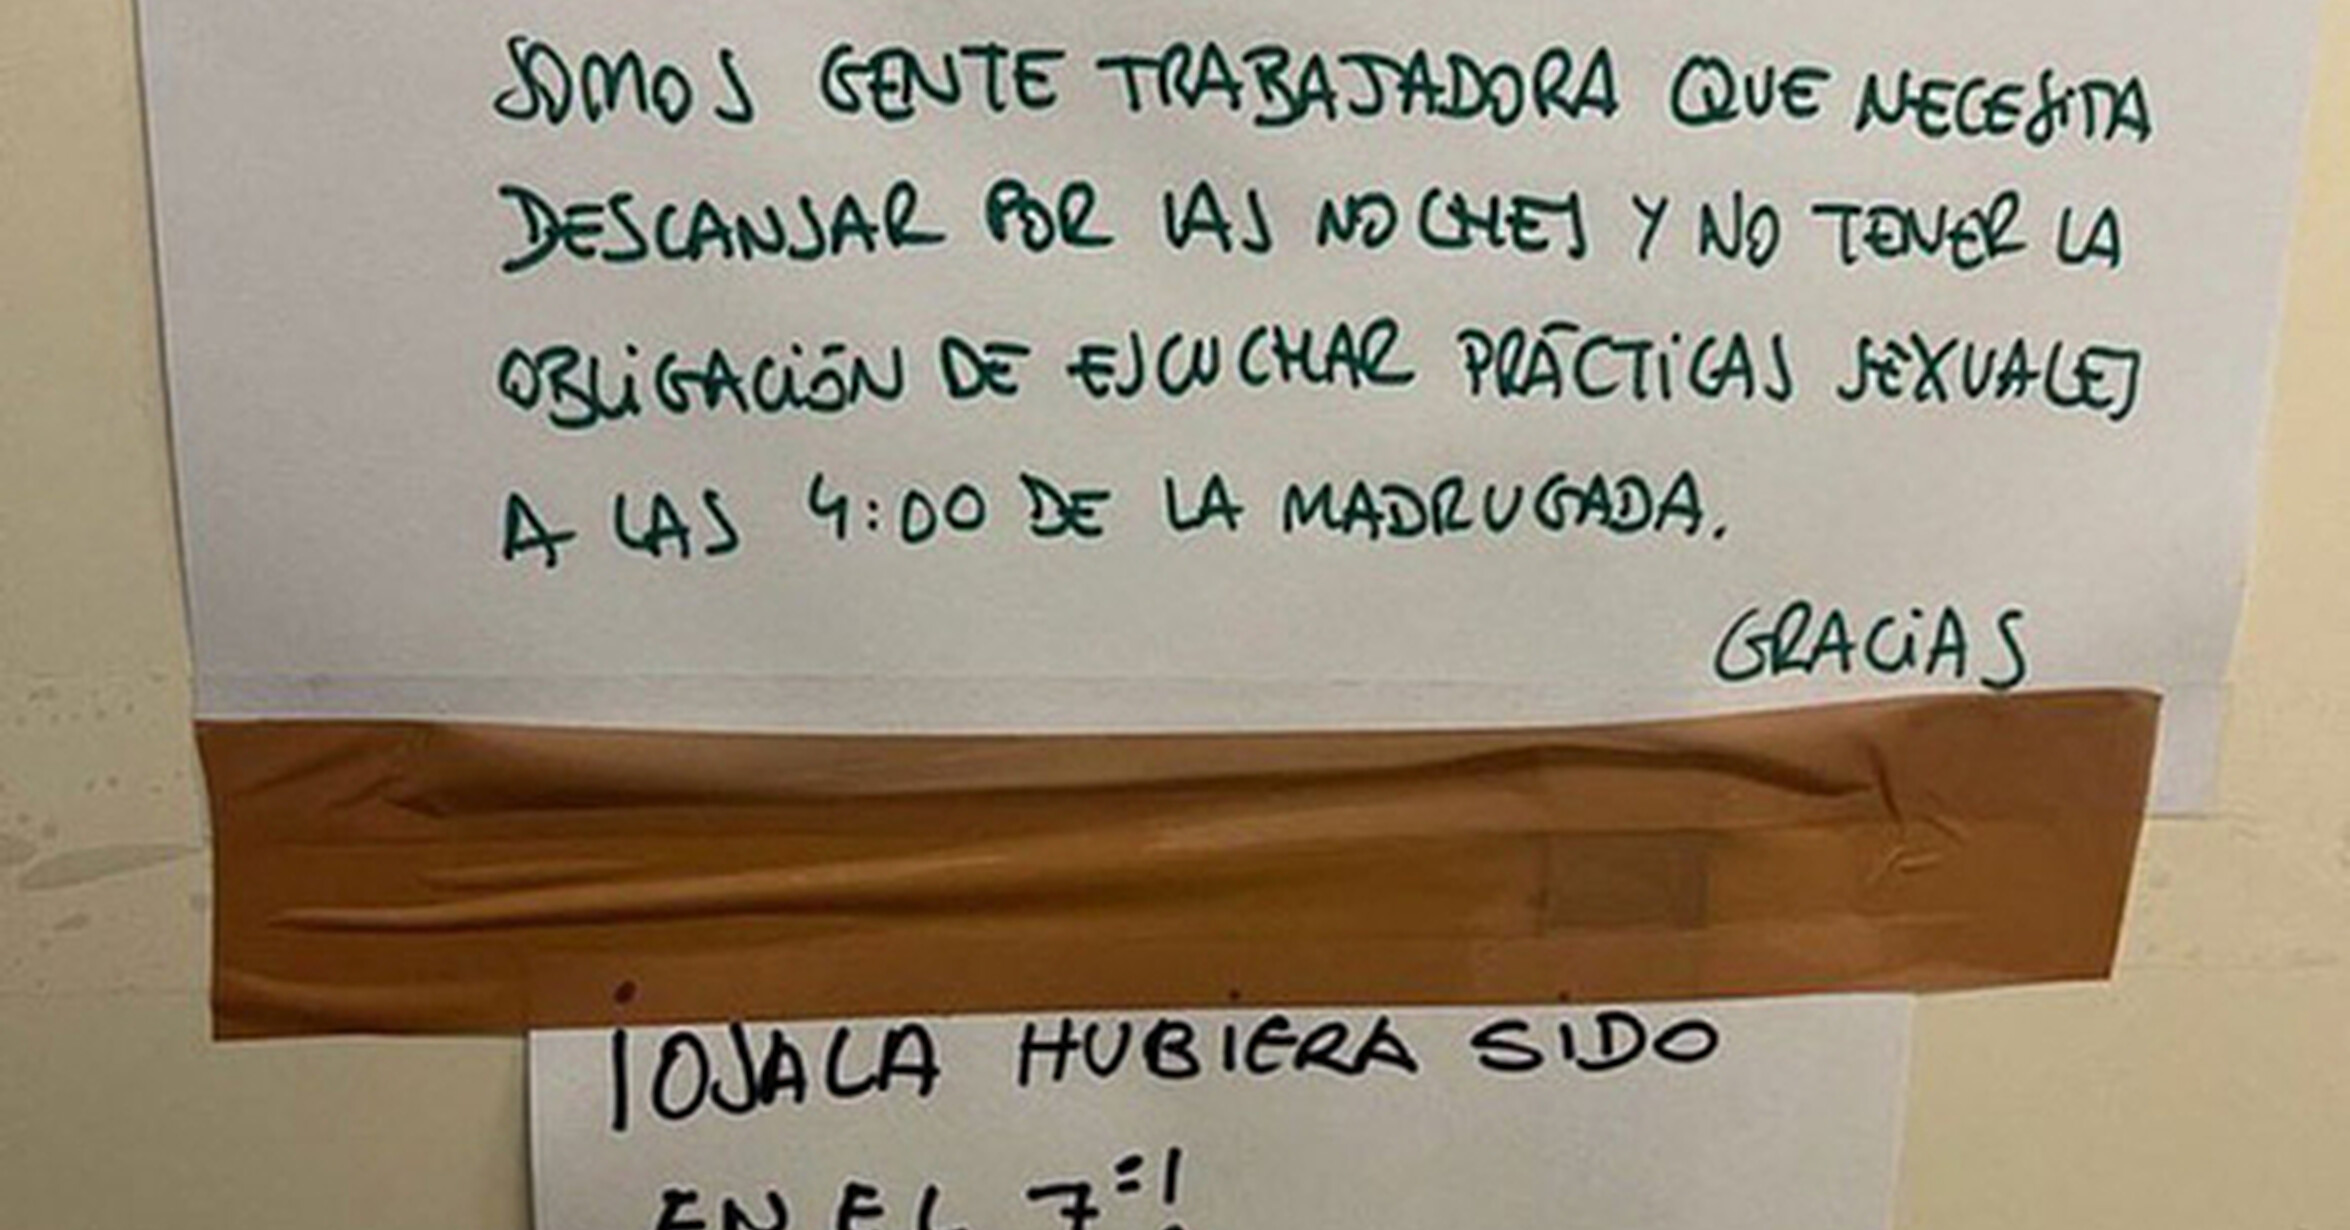 SOMOS GENTE TRABAJADORA QUE NECESITA
DESCANSAR POR LAS NOCHES Y NO TENER LA
OBLIGACIÓN DE ESCUCHAR PRÁCTICAS SEXUALES
A LAS 4:00 DE LA MADRUGADA.
GRACIAS
¡OJALA HUBIERA SIDO
EN EL 7º!